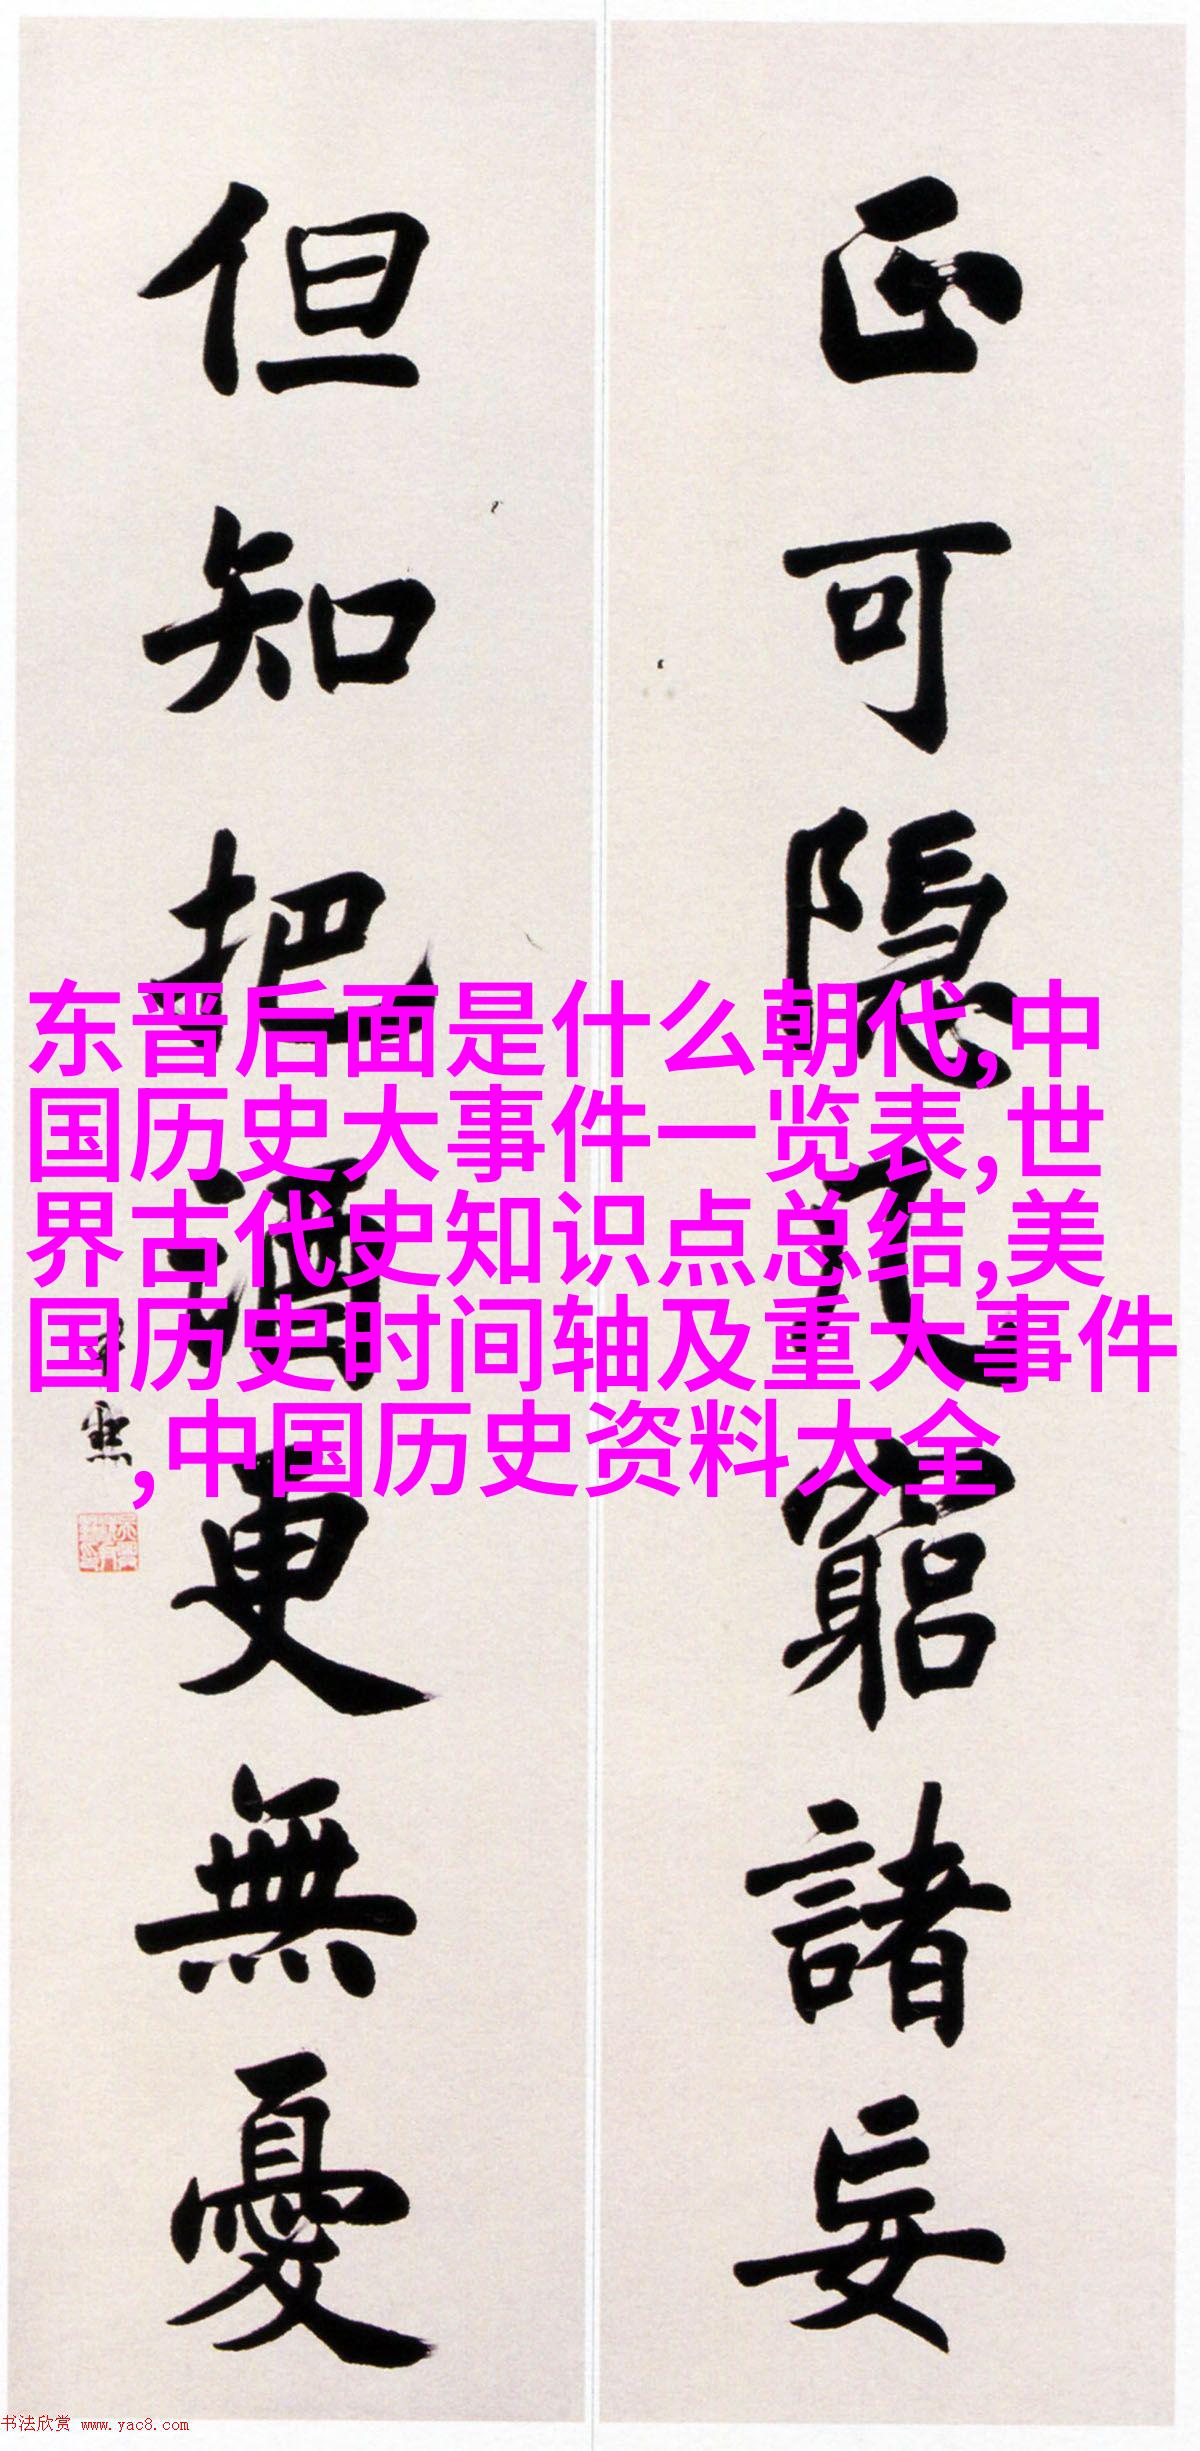 正可隐几窮諸妄
但知把酒更無憂
东晋后面是什么朝代,中
国历史大事件一览表,世
界古代史知识点总结,美
国历史时间轴及重大事件
,中国历史资料大全
书法欣赏 www.yac8.com